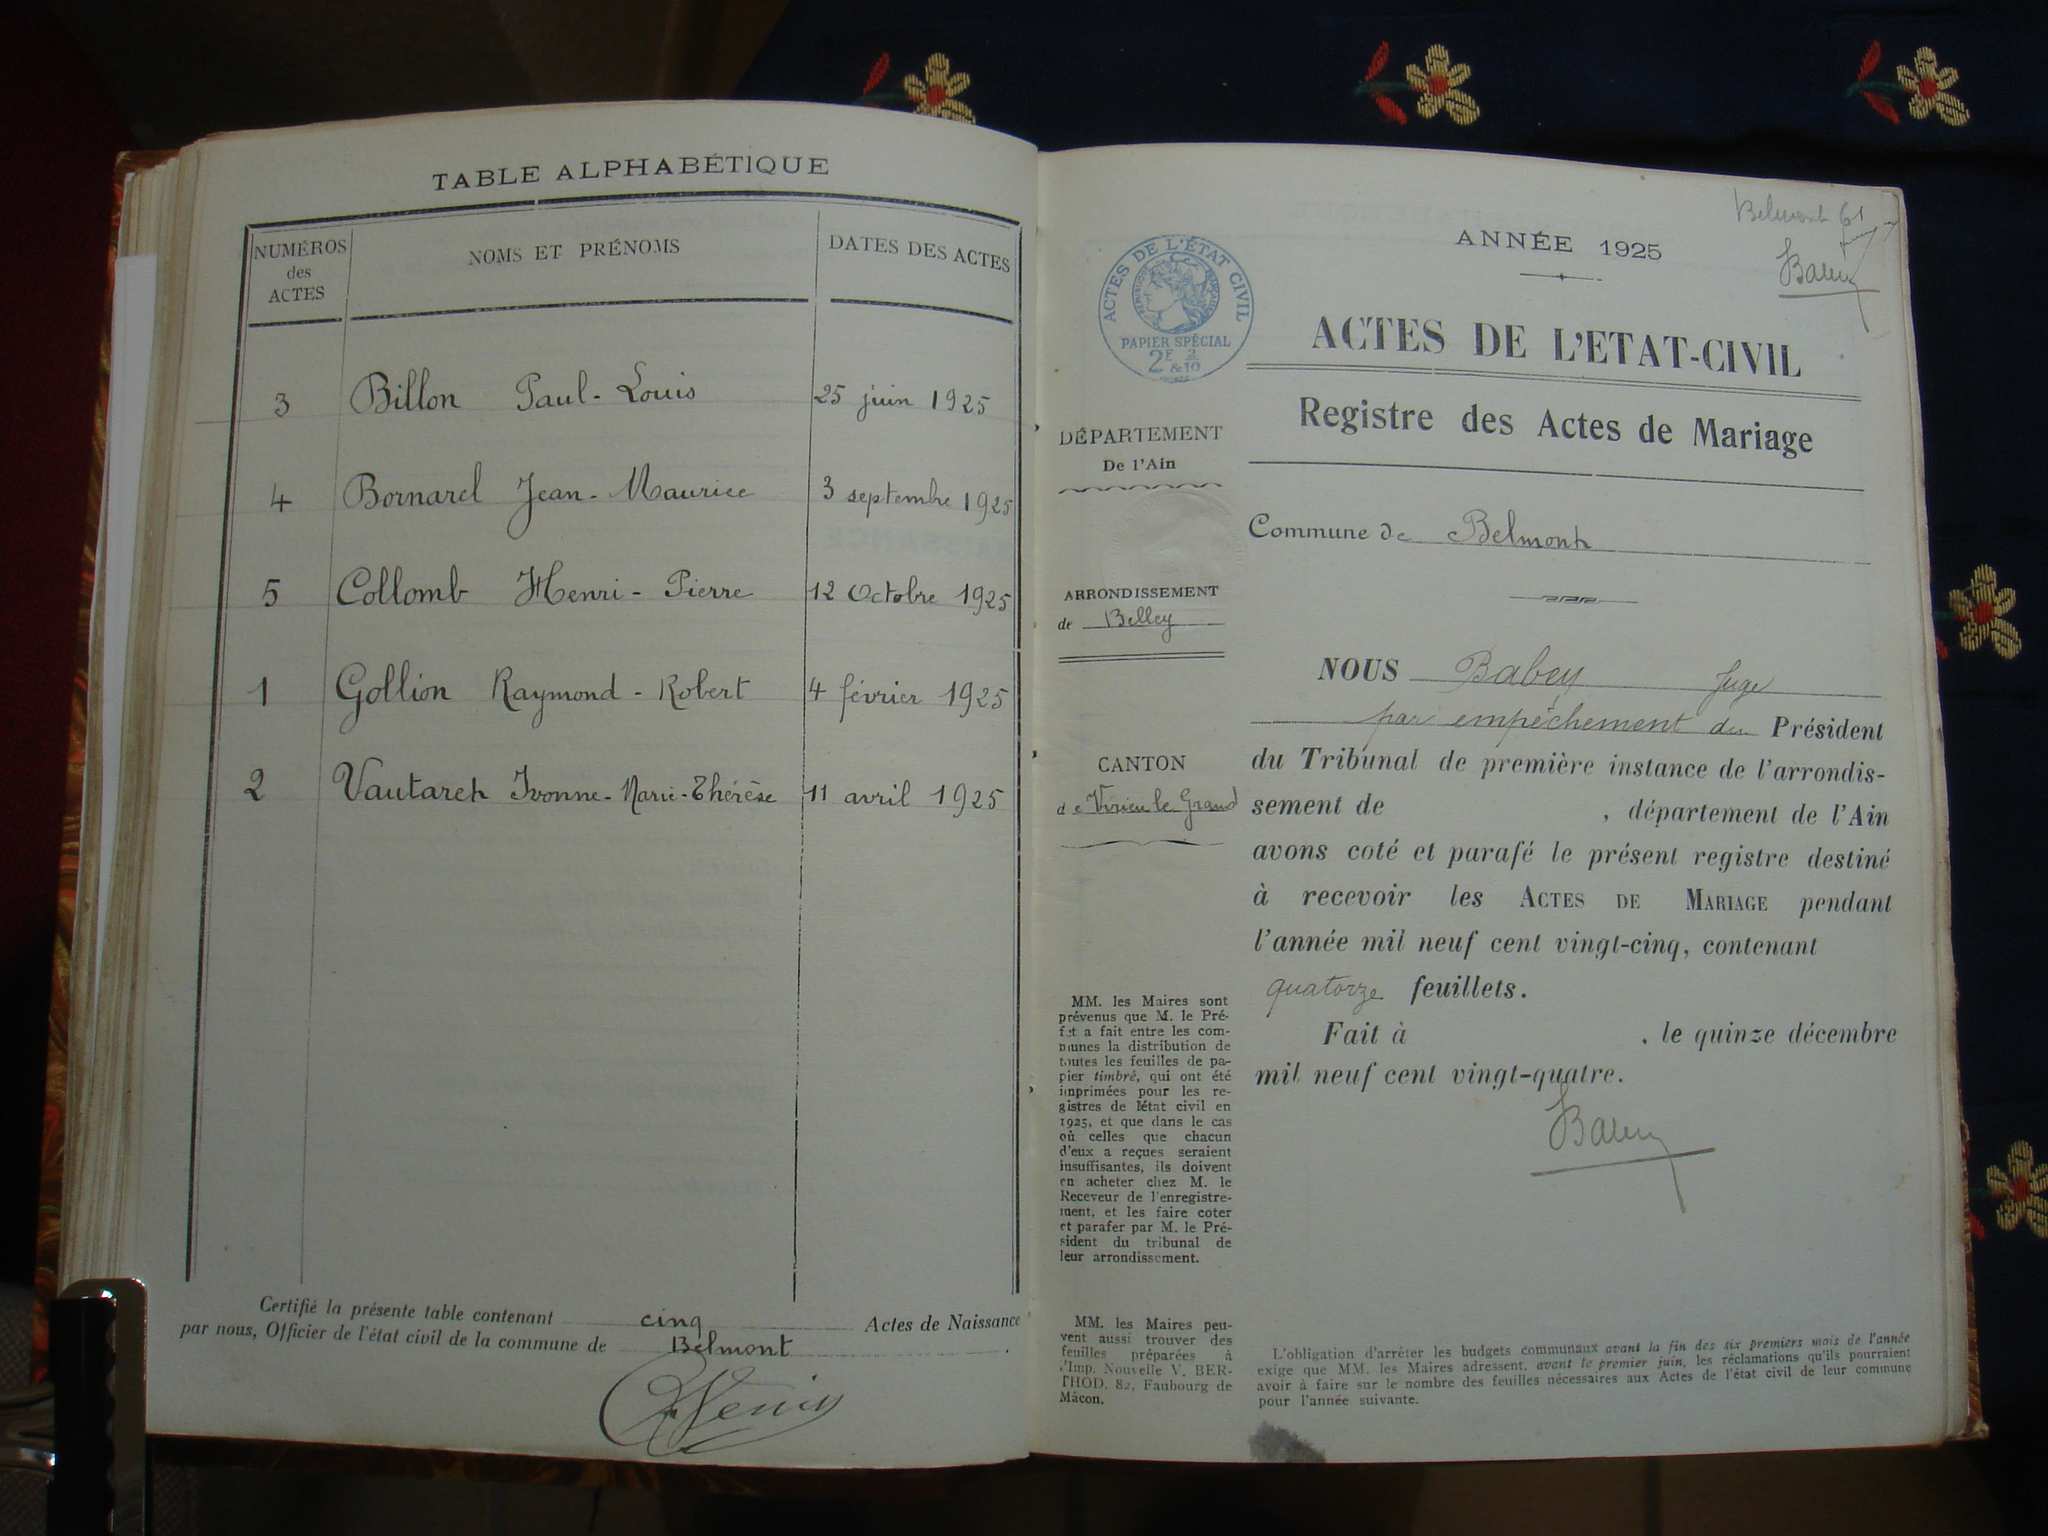 TABLE ALPHABÉTIQUE
NUMÉROS
des
ACTES
NOMS ET PRÉNOMS
DATES DES ACTES
3 Billon Paul-Louis 25 juin 1925
4 Bornarel Jean-Maurice 3 septembre 1925
5 Collomb Henri-Pierre 12 Octobre 1925
1 Gollion Raymond-Robert 4 février 1925
2 Vautaret Ivonne-Marie-Thérèse 11 avril 1925
Certifié la présente table contenant cinq Actes de Naissance
par nous, Officier de l'état civil de la commune de Belmont.
Belmont
ANNÉE 1925
ACTES DE L'ÉTAT CIVIL
PAPIER SPÉCIAL
2F & 2/10
ACTES DE L'ETAT-CIVIL
Registre des Actes de Mariage
DÉPARTEMENT
De l'Ain
Commune de Belmont
ARRONDISSEMENT
de Belley
CANTON
de Virieu le Grand
NOUS Babey Juge
par empêchement du Président
du Tribunal de première instance de l'arrondis-
sement de , département de l'Ain
avons coté et parafé le présent registre destiné
à recevoir les ACTES DE MARIAGE pendant
l'année mil neuf cent vingt-cinq, contenant
quatorze feuillets.
Fait à , le quinze décembre
mil neuf cent vingt-quatre.
MM. les Maires sont
prévenus que M. le Pré-
fet a fait entre les com-
munes la distribution de
toutes les feuilles de pa-
pier timbré, qui ont été
imprimées pour les re-
gistres de l'état civil en
1925, et que dans le cas
où celles que chacun
d'eux a reçues seraient
insuffisantes, ils doivent
en acheter chez M. le
Receveur de l'enregistre-
ment, et les faire coter
et parafer par M. le Pré-
sident du tribunal de
leur arrondissement.
MM. les Maires peu-
vent aussi trouver des
feuilles préparées à
l'Imp. Nouvelle V. BER-
THOD, 82, Faubourg de
Mâcon.
L'obligation d'arrêter les budgets communaux avant la fin des six premiers mois de l'année
exige que MM. les Maires adressent, avant le premier juin, les réclamations qu'ils pourraient
avoir à faire sur le nombre des feuilles nécessaires aux Actes de l'état civil de leur commune
pour l'année suivante.